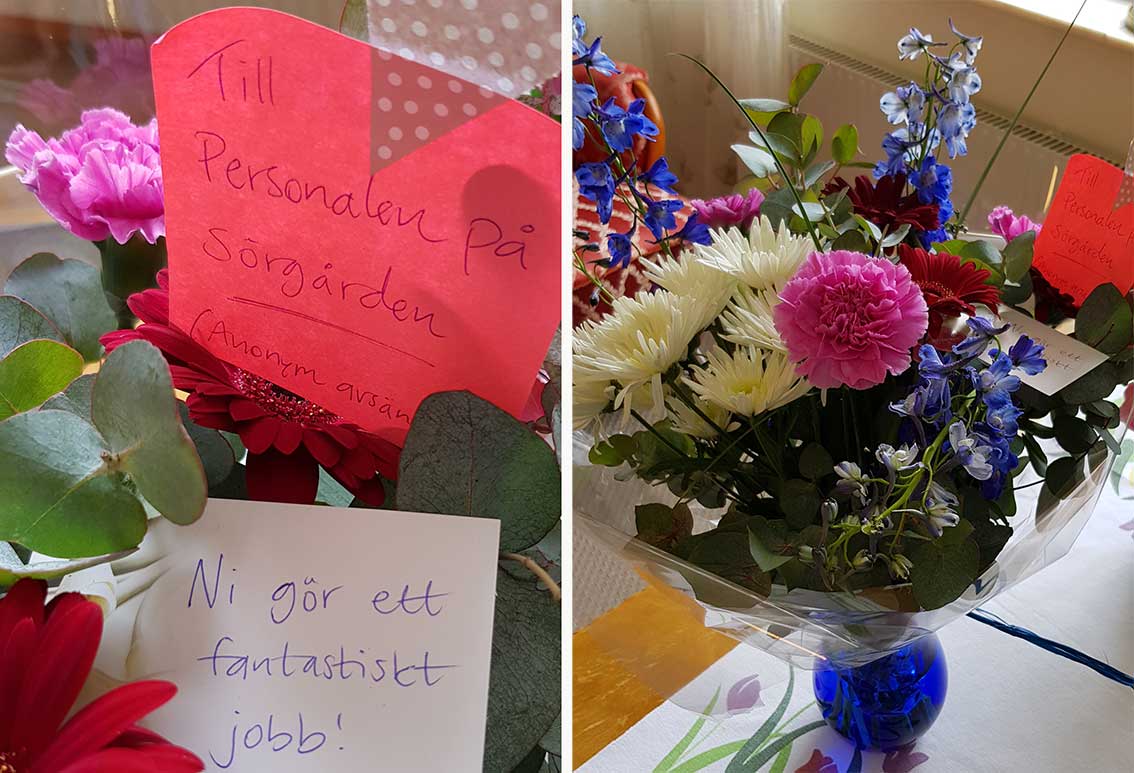 Till
Personalen på
Sörgården
(Anonym avsän
Ni gör ett
fantastiskt
jobb!
Till
Personalen p
Sörgården